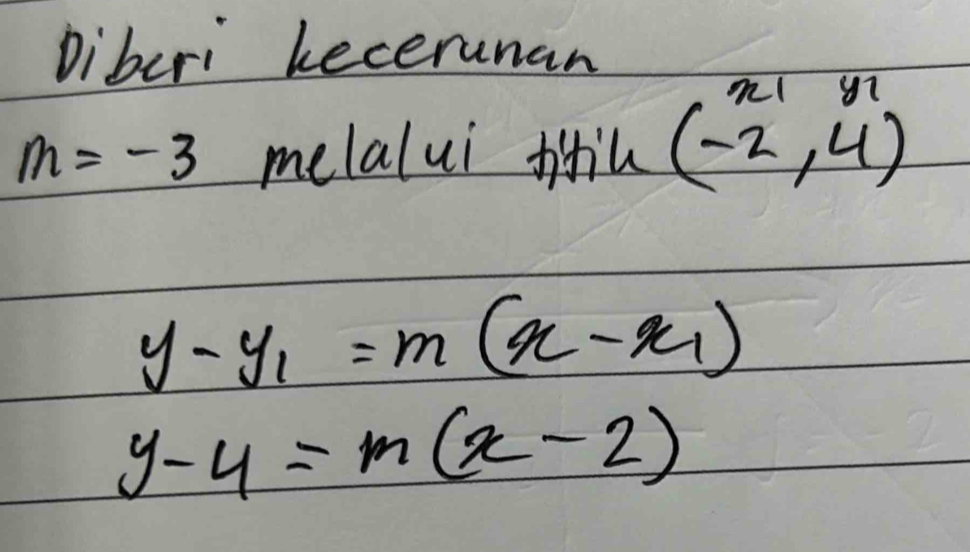 Diberi kecerunan
x1 y1
m = -3 melalui titik (-2, 4)
y - y1 = m (x - x1)
y - 4 = m (x - 2)